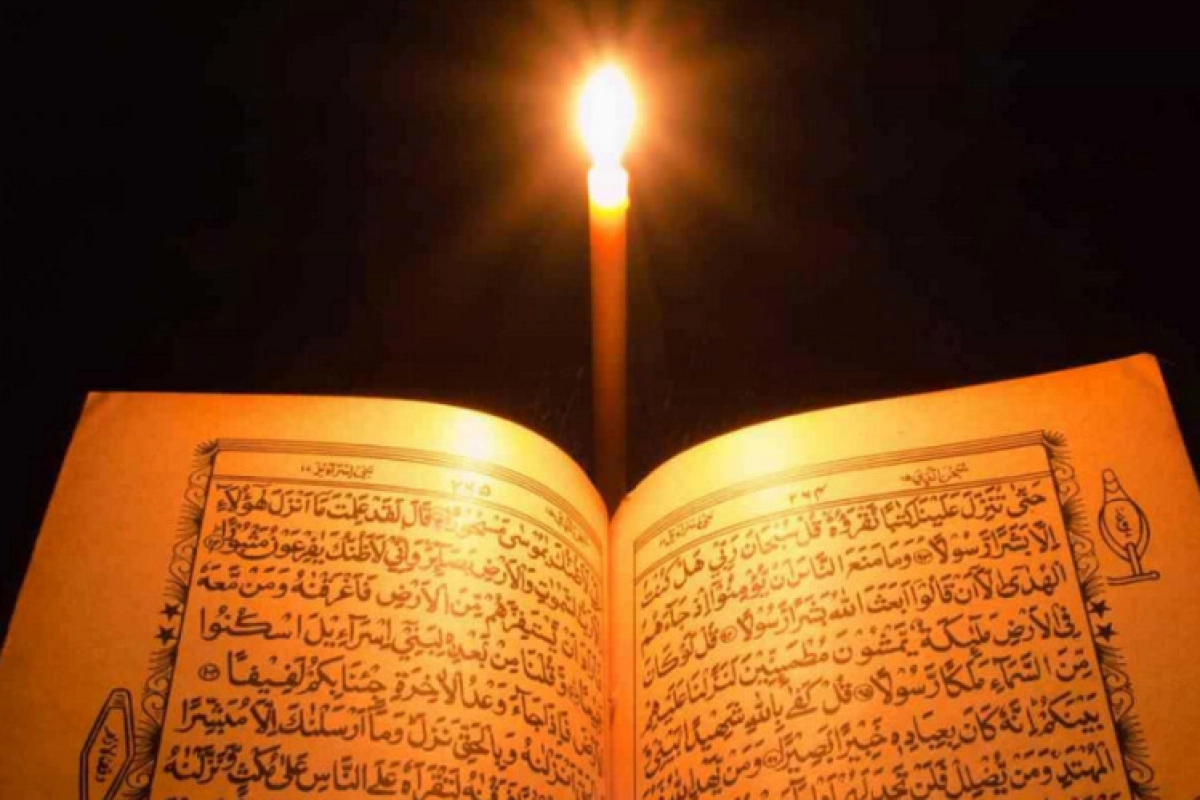 سبحن الذي ١٥
٢٦٤
حَتّٰى تُنَزِّلَ عَلَيْنَا كِتٰبًا نَّقْرَؤُهٗ قُلْ سُبْحَانَ رَبِّيْ هَلْ كُنْتُ
اِلَّا بَشَرًا رَّسُوْلًا وَمَا مَنَعَ النَّاسَ اَنْ يُّؤْمِنُوْا اِذْ جَآءَهُمُ
الْهُدٰى اِلَّا اَنْ قَالُوْا اَبَعَثَ اللهُ بَشَرًا رَّسُوْلًا قُلْ لَّوْ كَانَ
فِي الْاَرْضِ مَلٰٓئِكَةٌ يَّمْشُوْنَ مُطْمَئِنِّيْنَ لَنَزَّلْنَا عَلَيْهِمْ
مِّنَ السَّمَآءِ مَلَكًا رَّسُوْلًا قُلْ كَفٰى بِاللهِ شَهِيْدًا بَيْنِيْ وَ
بَيْنَكُمْ اِنَّهٗ كَانَ بِعِبَادِهٖ خَبِيْرًا بَصِيْرًا وَمَنْ يَّهْدِ اللهُ
الْمُهْتَدِ وَمَنْ يُّضْلِلْ فَلَنْ تَجِدَ لَهُمْ
٢٦٥
بني اسرآءيل ١٧
لَاَظُنُّكَ يٰمُوْسٰى مَسْحُوْرًا قَالَ لَقَدْ عَلِمْتَ مَآ اَنْزَلَ هٰٓؤُلَآءِ
السَّمٰوٰتِ وَالْاَرْضِ بَصَآئِرَ وَاِنِّيْ لَاَظُنُّكَ يٰفِرْعَوْنُ مَثْبُوْرًا
اَنْ يَّسْتَفِزَّهُمْ مِّنَ الْاَرْضِ فَاَغْرَقْنٰهُ وَمَنْ مَّعَهٗ
وَّقُلْنَا مِنْۢ بَعْدِهٖ لِبَنِيْٓ اِسْرَآءِيْلَ اسْكُنُوا
فَاِذَا جَآءَ وَعْدُ الْاٰخِرَةِ جِئْنَا بِكُمْ لَفِيْفًا
اَنْزَلْنٰهُ وَبِالْحَقِّ نَزَلَ وَمَآ اَرْسَلْنٰكَ اِلَّا مُبَشِّرًا
لِتَقْرَاَهٗ عَلَى النَّاسِ عَلٰى مُكْثٍ وَّنَزَّلْنٰهُ